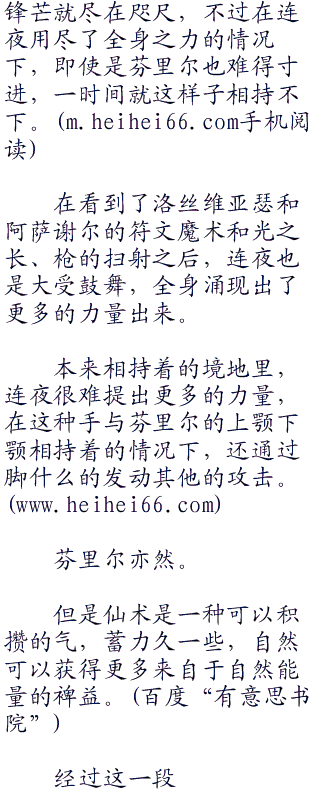 锋芒就尽在咫尺，不过在连
夜用尽了全身之力的情况
下，即使是芬里尔也难得寸
进，一时间就这样子相持不
下。(m.heihei66.com手机阅
读)
在看到了洛丝维亚瑟和
阿萨谢尔的符文魔术和光之
长、枪的扫射之后，连夜也
是大受鼓舞，全身涌现出了
更多的力量出来。
本来相持着的境地里，
连夜很难提出更多的力量，
在这种手与芬里尔的上颚下
颚相持着的情况下，还通过
脚什么的发动其他的攻击。
(www.heihei66.com)
芬里尔亦然。
但是仙术是一种可以积
攒的气，蓄力久一些，自然
可以获得更多来自于自然能
量的裨益。(百度“有意思书
院”)
经过这一段